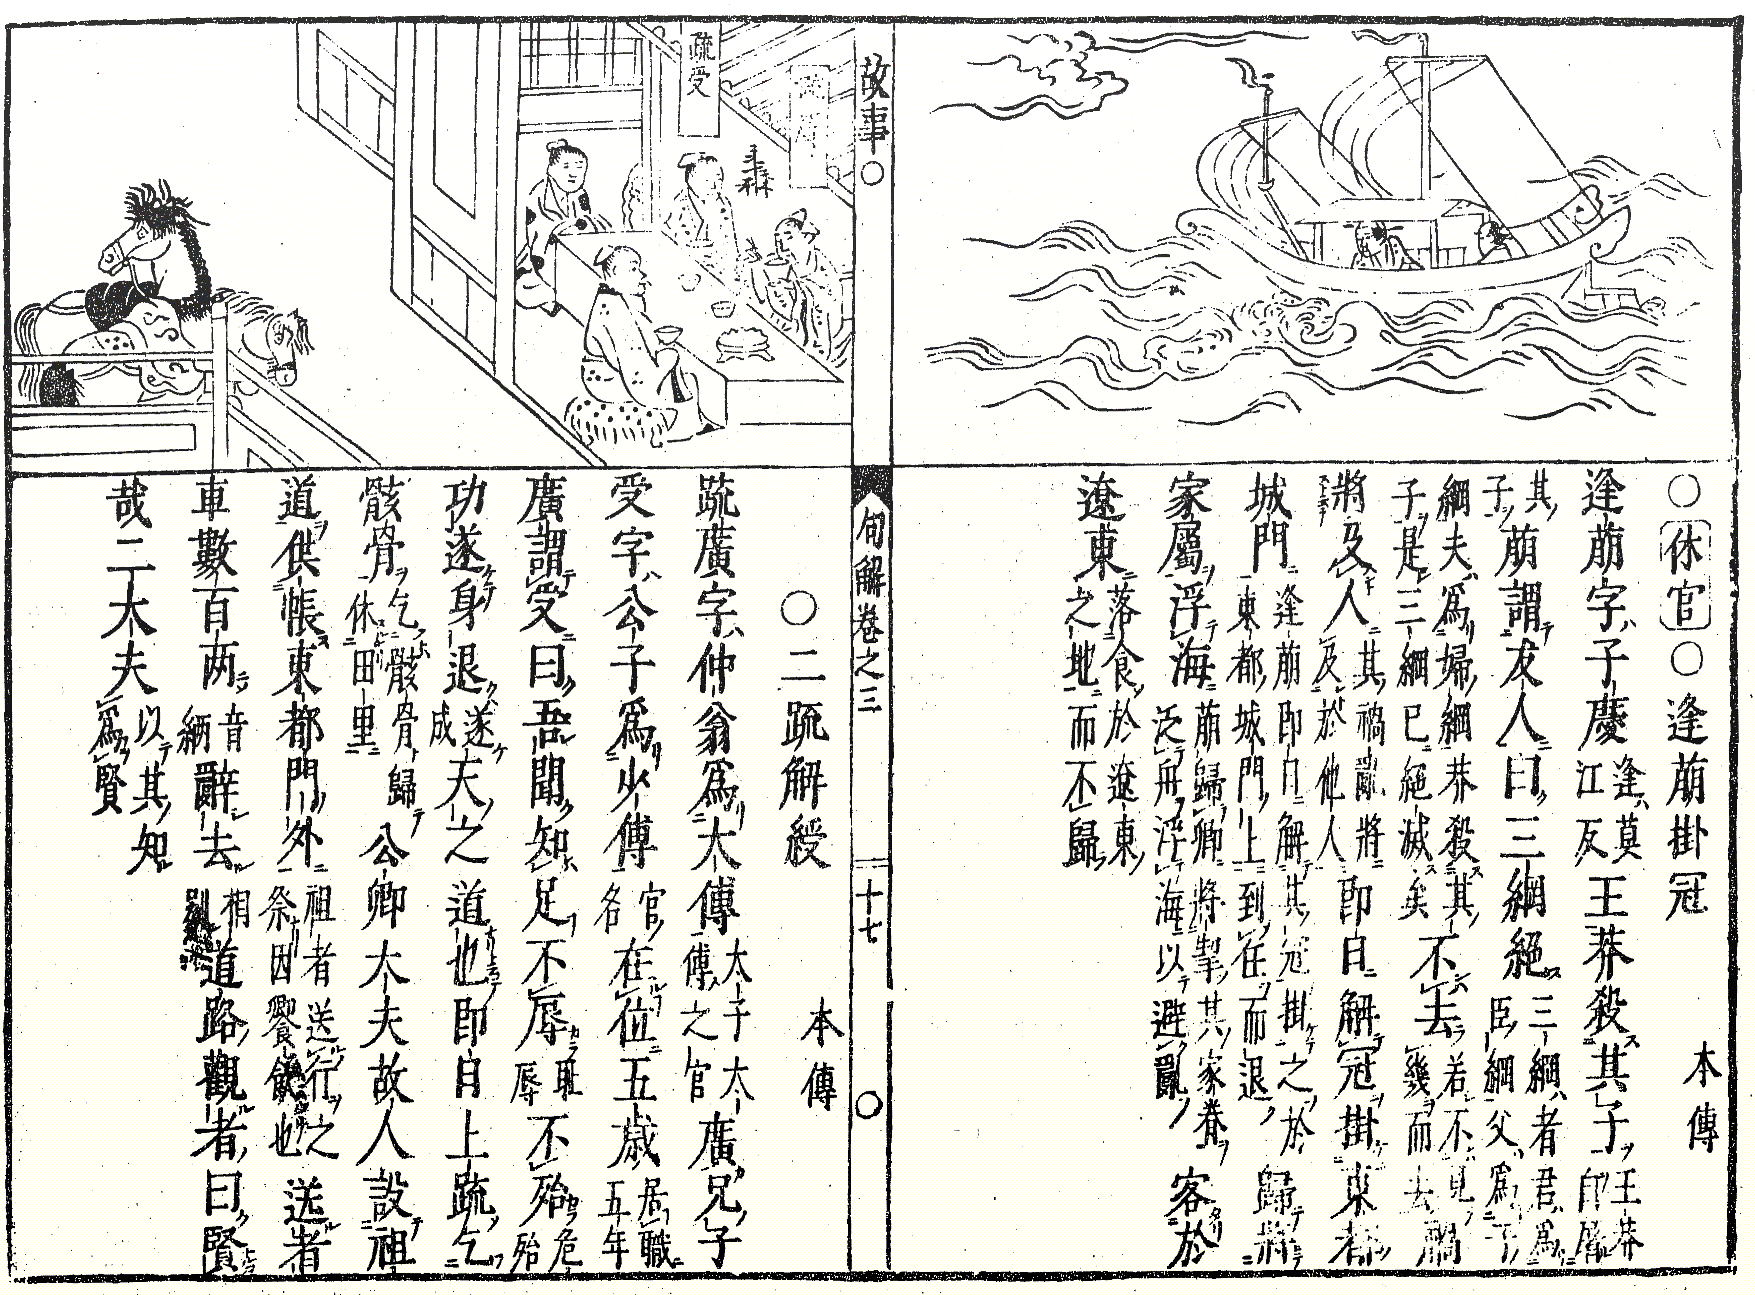 ○休官○逢萌掛冠 本傳
逢萌字子慶逢莫江反王莽殺其子王莽自
其子萌謂友人曰三綱絕三綱者君為臣綱父為子
綱夫爲婦綱莽殺其子是三綱已絕滅矣不去若不見幾而去禍
將及人其禍亂將及於他人即日解冠掛東都
城門逢萌即日解其冠掛之於東都城門上到在而退歸將
家屬浮海萌歸卿將挈其家眷泛舟浮海以避亂客於
遼東落食於遼東之地而不歸
故事○
句解卷之三
十七
○
疏受
○二疏解綬 本傳
疏廣字仲翁爲太傅太子太傅之官廣兄子
受字公子爲少傅官名在位五歲居職五年
廣謂受曰吾聞知足不辱恥辱不殆危殆
功遂身退遂成天之道也即日上疏乞
骸骨乞骸骨歸休田里公卿大夫故人設祖
道供帳東都門外祖者送行之祭因饗飲也送者
車數百两音緉辭去相別道路觀者曰賢
哉二大夫以其知爲賢